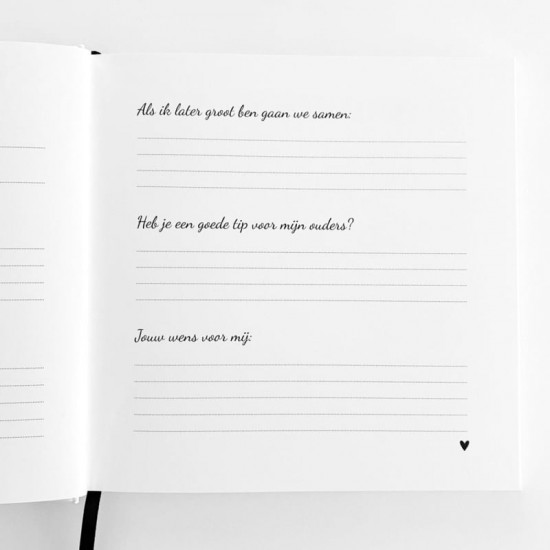 Als ik later groot ben gaan we samen:
Heb je een goede tip voor mijn ouders?
Jouw wens voor mij: